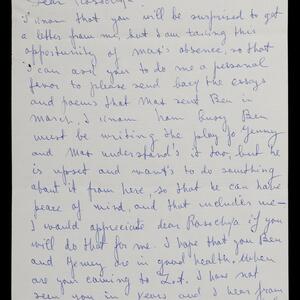 Dear Rasochya
I know that you will be surprised to get
a letter from me, but I am taking this
opportunity of Max's absence, so that
I can ask you to do me a personal
favor to please send bacy the essays
and poems that Max sent Ben in
March. I know how busy Ben
must be writing the play so Jenny
and Max understand's it too, but he
is upset and want's to do somthing
about it from here, so that he can have
peace of mind, and that includes me—
I would appreciate dear Rasochya if you
will do that for me. I hope that you Ben
and Jenney are in good health. When
are your coming to L.A. I have not
seen you in years and I hear from